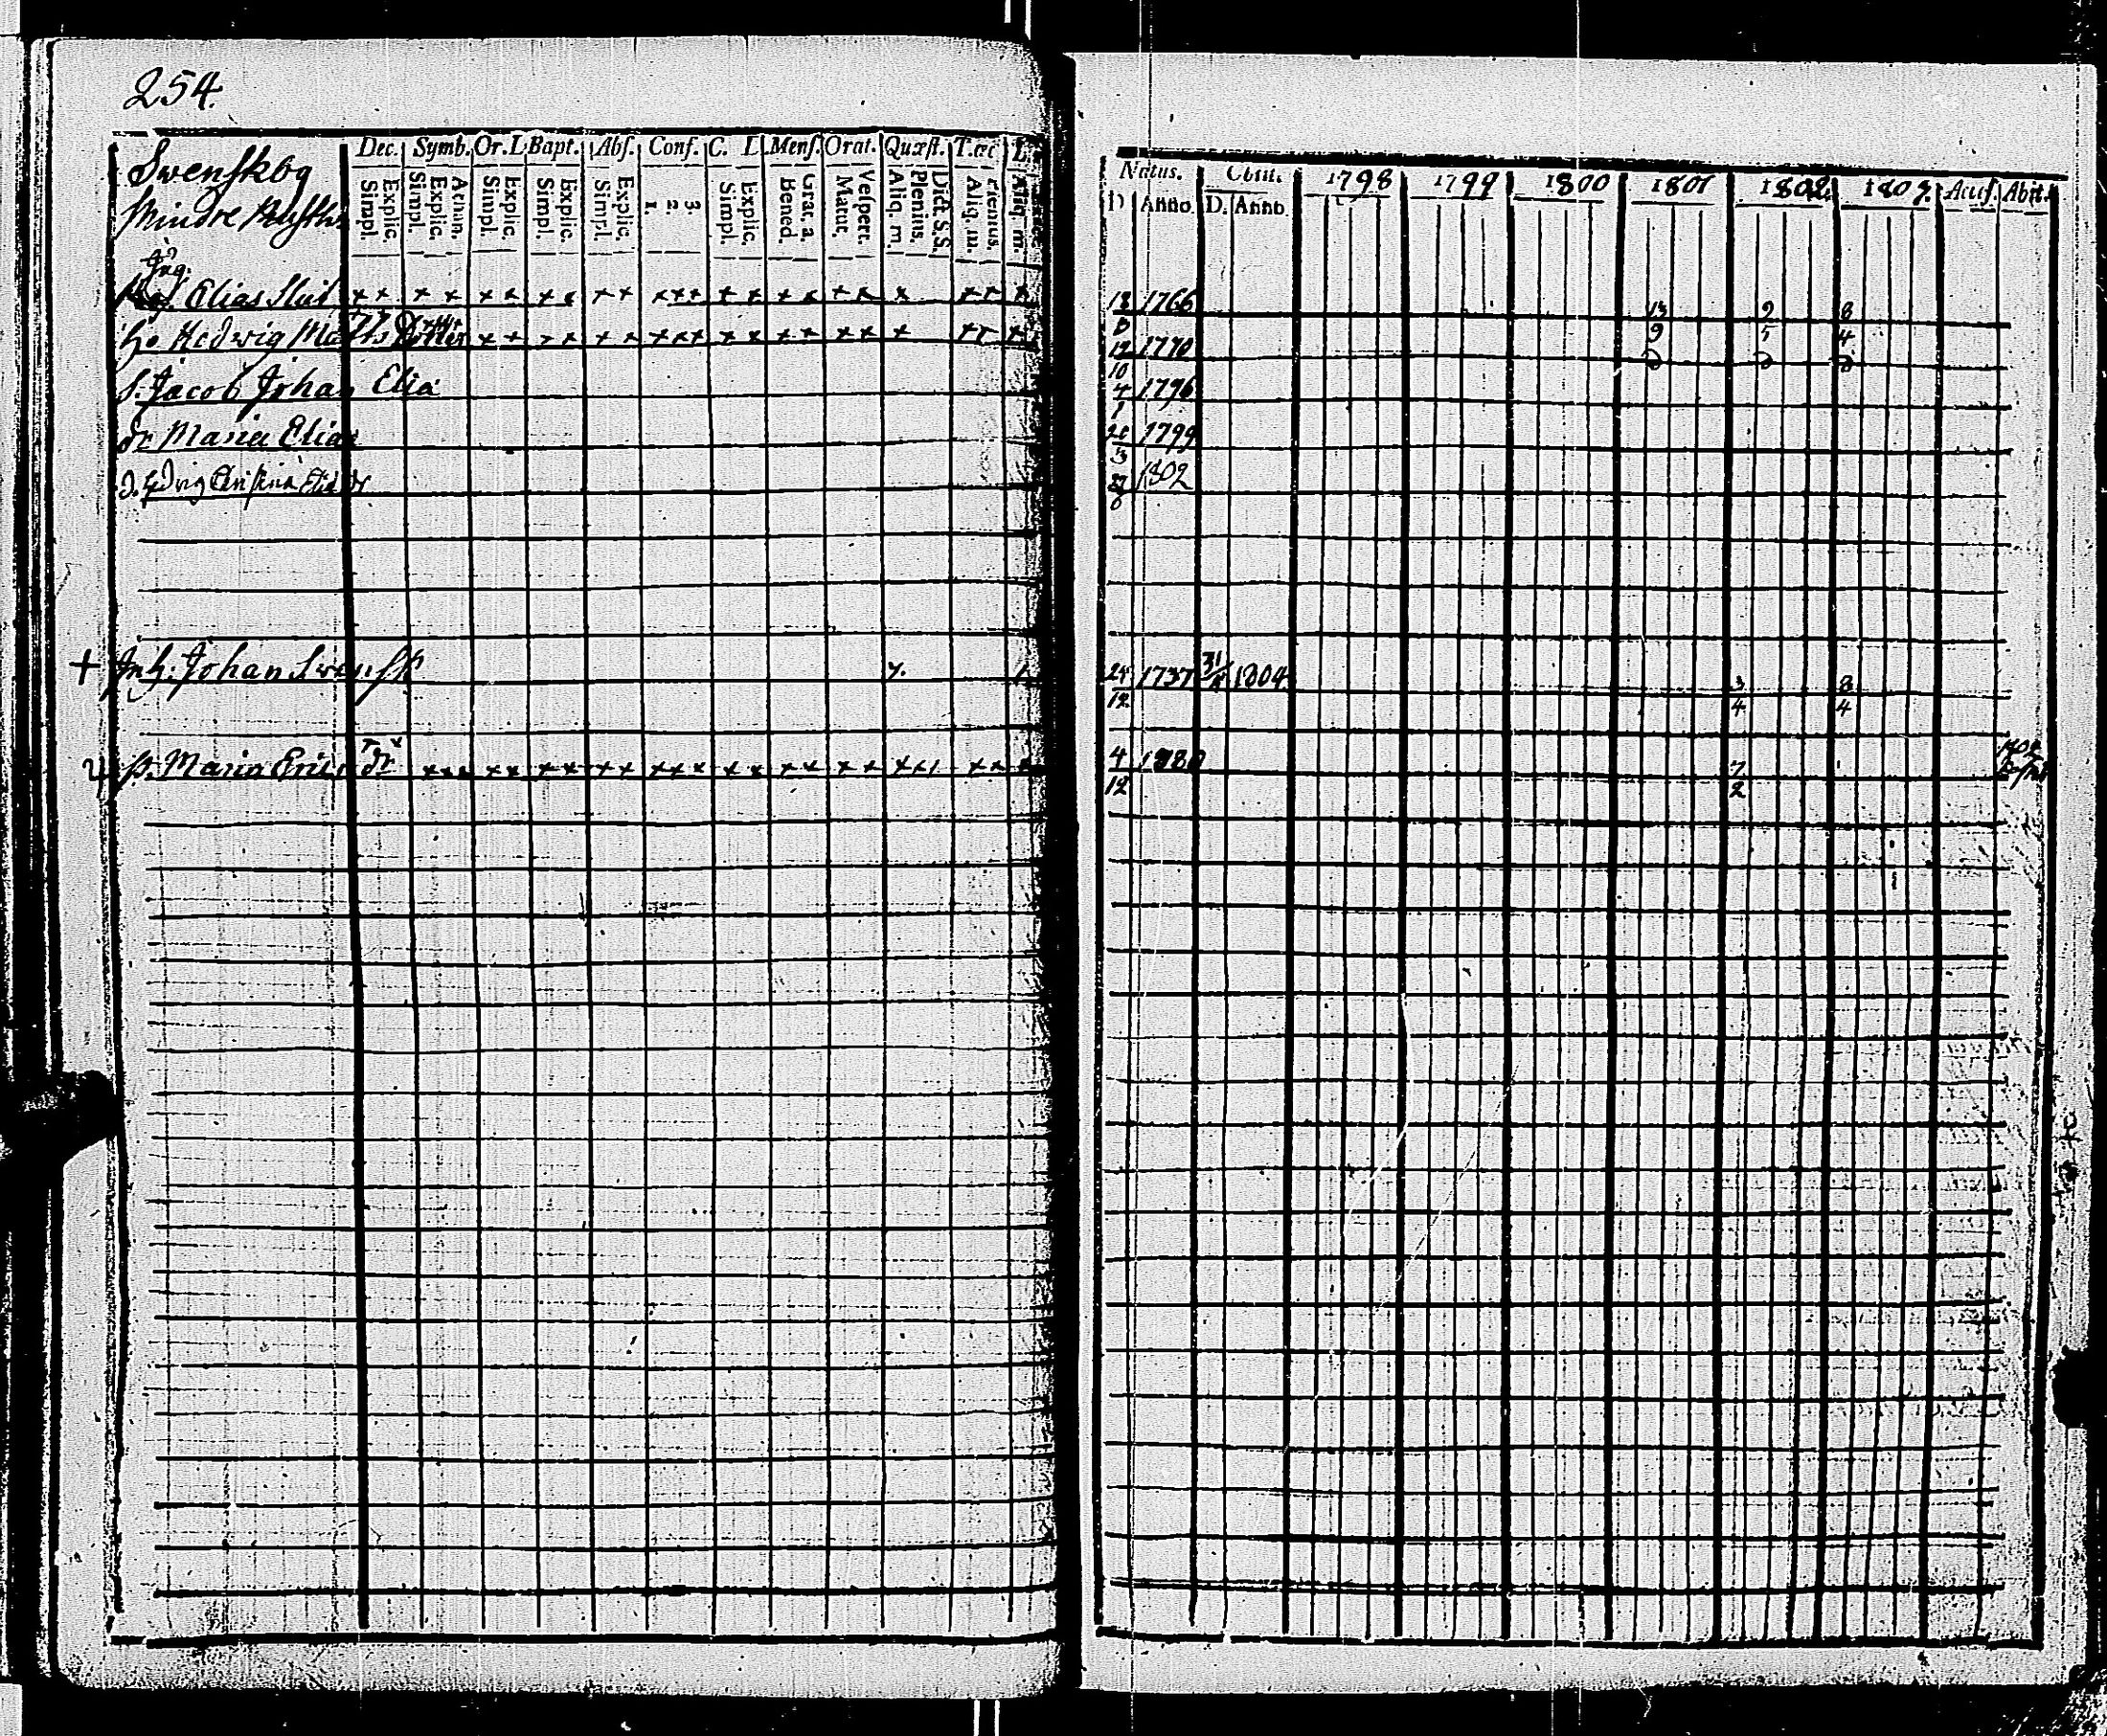 254.
Swenskbg
Mindre
Dec. Symb. Or. L Bapt. Abſ. Conf. C. L Menſ. Orat. Quæſt. T.œc L.
Simpl. Explic. Simpl. Explic. Athan. Simpl. Explic. Simpl. Explic. Simpl. Explic. 1. 2. 3. Simpl. Explic. Bened. Grat. a. Matut. Veſpert. Aliq. m. Plenius. Dict. S.S. Aliq. m. Plenius. Aliq. m.
Natus. Obiit. 1798 1799 1800 1801 1802 1803. Accuſ. Abit.
D Anno. D. Anno.
Elias x x x x x x x x x x x x x x x x x x x x x x x 18 1766 13 9 8
8 9 5 4
Hedwig x x x x x x x x x x x x x x x x x x 12 1770
10
S. Jacob Johan Elia 4 1796
1
dr Maria Elias 1799
3
D. 27 1802
8
+ Inh. Johan Swensk 25 1737 31 1804 3 8
12 4 4
p. Maria Erics dr x x x x x x x x x x x x x x x x x x x x x x x 4 1780 7
12 2